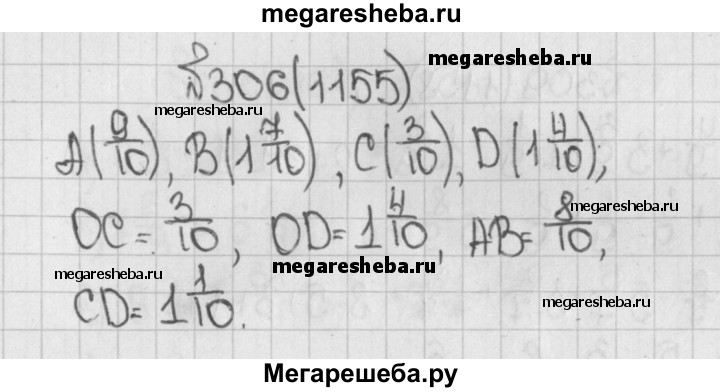 megaresheba.ru
№306(1155)
megaresheba.ru
megaresheba.ru
A(9/10), B(1 7/10), C(3/10), D(1 4/10);
megaresheba.ru
OC = 3/10, OD = 1 4/10, AB = 8/10,
megaresheba.ru
megaresheba.ru
megaresheba.ru
CD = 1 1/10.
Мегарешеба.ру